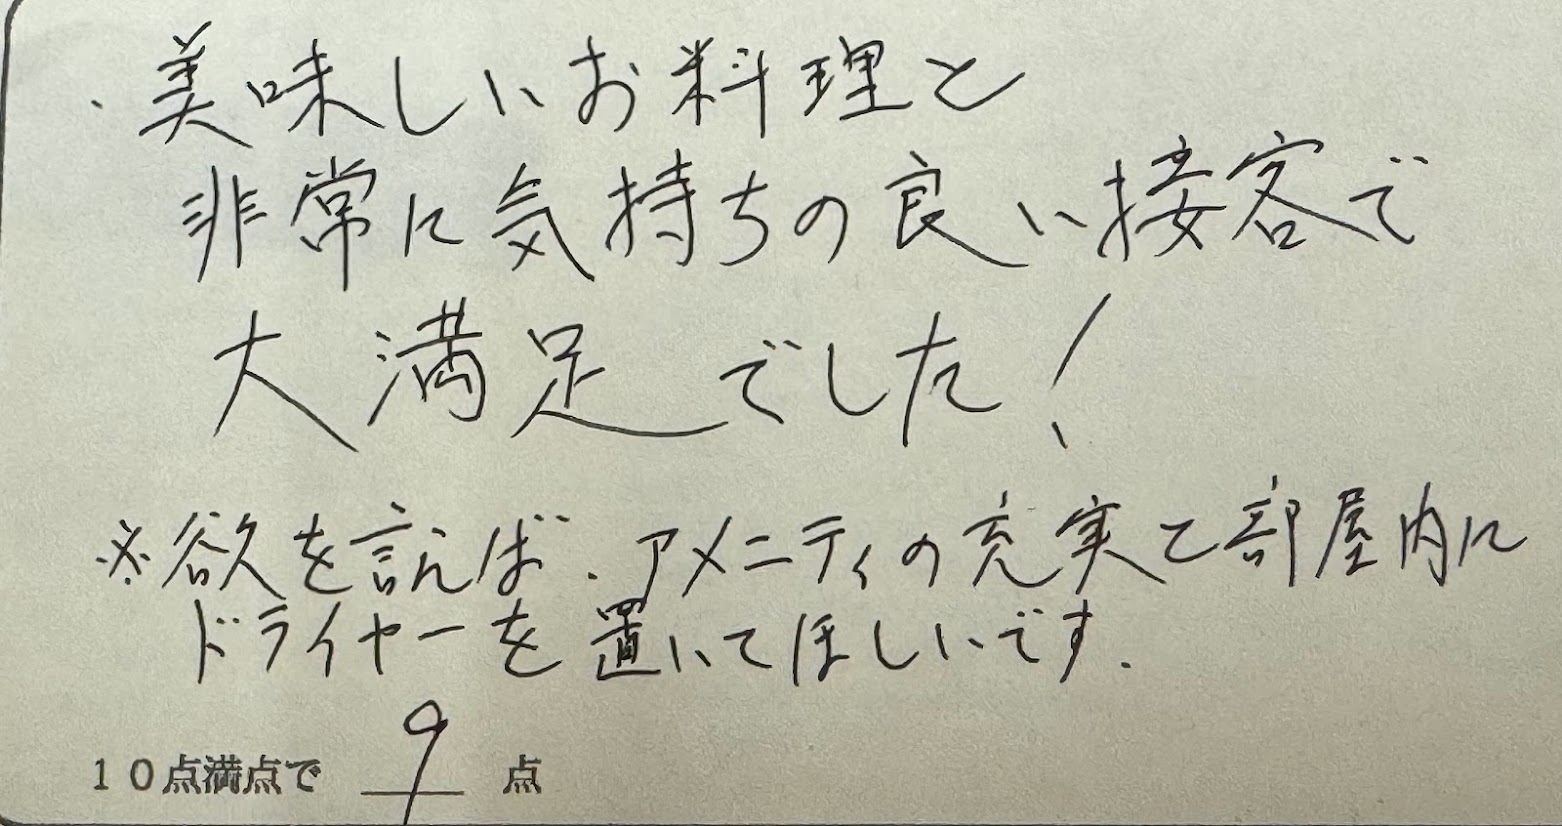 ・美味しいお料理と
非常に気持ちの良い接客で
大満足でした!
※欲を言えば、アメニティの充実と部屋内に
ドライヤーを置いてほしいです.
10点満点で 9 点